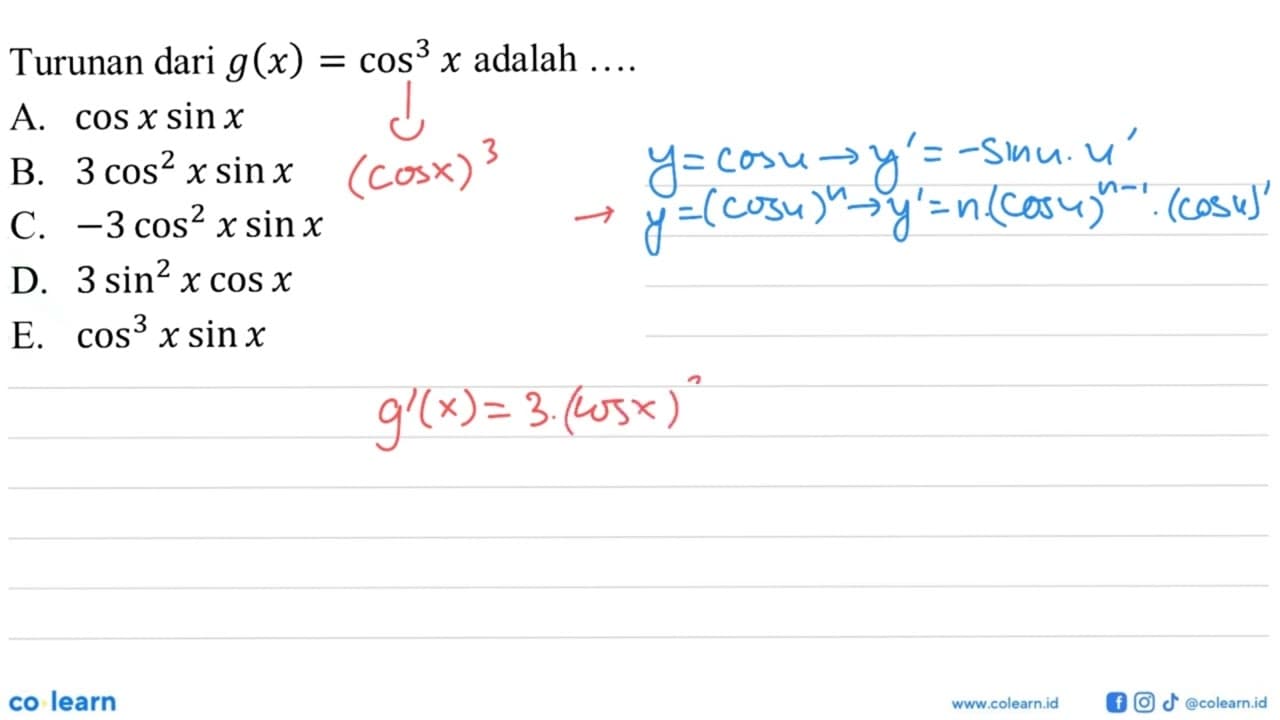 Turunan dari g(x) = cos³ x adalah ....
A. cos x sin x
B. 3 cos² x sin x
C. −3 cos² x sin x
D. 3 sin² x cos x
E. cos³ x sin x
(cosx)³
y = cosu → y' = -sinu. u'
→ y = (cosu)ⁿ → y' = n.(cosu)ⁿ⁻¹. (cosu)'
g'(x) = 3. (cosx)
co learn
www.colearn.id
@colearn.id